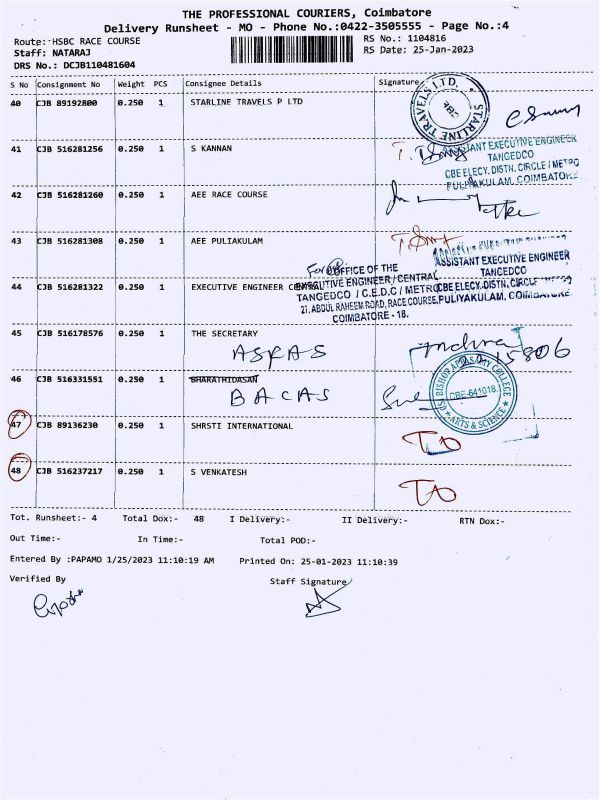 THE PROFESSIONAL COURIERS, Coimbatore
Delivery Runsheet - MO - Phone No.:0422-3505555 - Page No.:4
Route: HSBC RACE COURSE
RS No.: 1104816
Staff: NATARAJ
RS Date: 25-Jan-2023
DRS No.: DCJB110481604
S No Consignment No Weight PCS Consignee Details Signature
40 CJB 89192800 0.250 1 STARLINE TRAVELS P LTD
STARLINE TRAVELS LTD.
41 CJB 516281256 0.250 1 S KANNAN
ASSISTANT EXECUTIVE ENGINEER
TANGEDCO
CBE ELECY. DISTN. CIRCLE / METRO
PULIYAKULAM, COIMBATORE.
42 CJB 516281260 0.250 1 AEE RACE COURSE
43 CJB 516281308 0.250 1 AEE PULIAKULAM
ASSISTANT EXECUTIVE ENGINEER
TANGEDCO
CBE ELECY. DISTN. CIRCLE / METRO
PULIYAKULAM, COIMBATORE.
44 CJB 516281322 0.250 1 EXECUTIVE ENGINEER CENTRAL
OFFICE OF THE
EXECUTIVE ENGINEER / CENTRAL
TANGEDCO / C.E.D.C / METRO
27, ABDUL RAHEEM ROAD, RACE COURSE,
COIMBATORE - 18.
45 CJB 516178576 0.250 1 THE SECRETARY
ASRAS
46 CJB 516331551 0.250 1 BHARATHIDASAN
BACAS
CBE-641018.
ARTS & SCIENCE
47 CJB 89136230 0.250 1 SHRSTI INTERNATIONAL
48 CJB 516237217 0.250 1 S VENKATESH
Tot. Runsheet:- 4 Total Dox:- 48 I Delivery:- II Delivery:- RTN Dox:-
Out Time:- In Time:- Total POD:-
Entered By :PAPAMO 1/25/2023 11:10:19 AM Printed On: 25-01-2023 11:10:39
Verified By Staff Signature